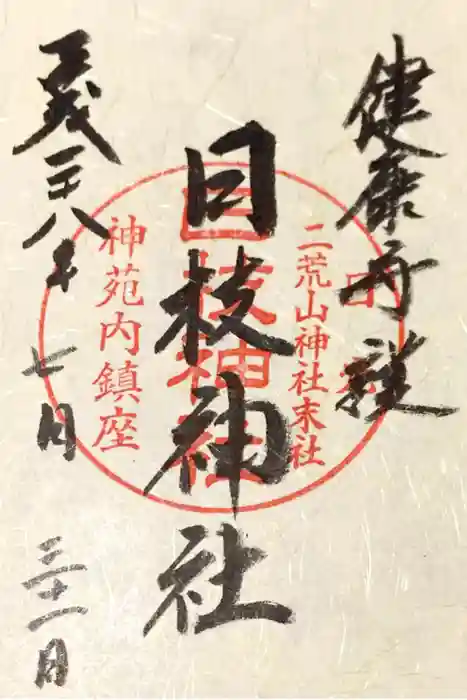 健康守護
日光
二荒山神社末社
日枝神社
日枝神社
神苑内鎮座
平成二十八年
七月
三十一日